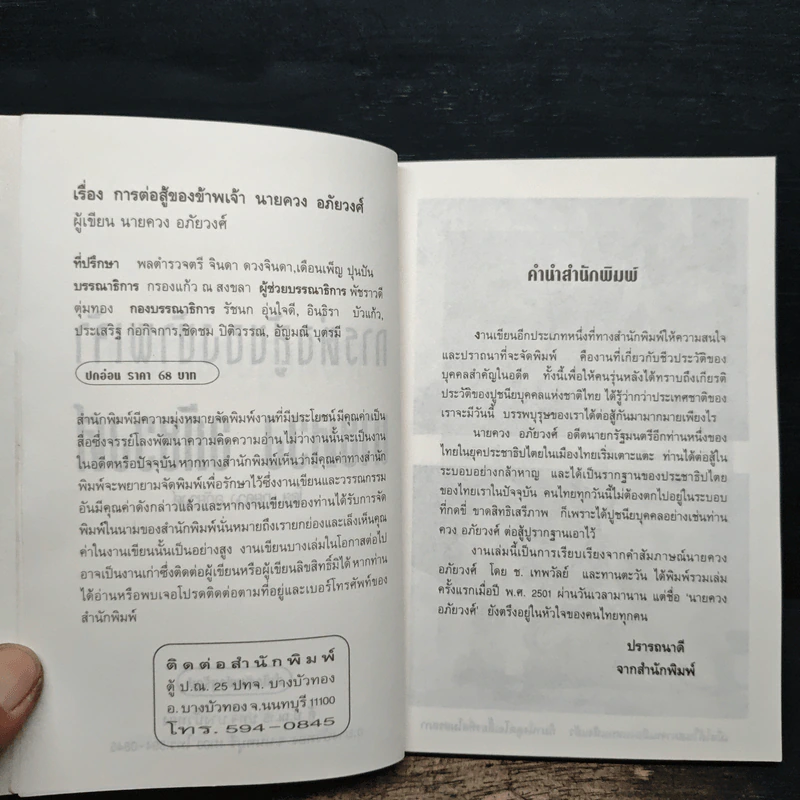 เรื่อง การต่อสู้ของข้าพเจ้า นายควง อภัยวงศ์
ผู้เขียน นายควง อภัยวงศ์
ที่ปรึกษา พลตำรวจตรี จินดา ดวงจินดา,เดือนเพ็ญ ปุนปัน
บรรณาธิการ กรองแก้ว ณ สงขลา ผู้ช่วยบรรณาธิการ พัชราวดี
ตุ่มทอง กองบรรณาธิการ รัชนก อุ่นใจดี, อินธิรา บัวแก้ว,
ประเสริฐ ก่อกิจการ,ชิดชม ปิติวรรณ, อัญมณี บุตรมี
ปกอ่อน ราคา 68 บาท
สำนักพิมพ์มีความมุ่งหมายจัดพิมพ์งานที่มีประโยชน์มีคุณค่าเป็น
สื่อซึ่งจรรย์โลงพัฒนาความคิดความอ่าน ไม่ว่างานนั้นจะเป็นงาน
ในอดีตหรือปัจจุบัน หากทางสำนักพิมพ์เห็นว่ามีคุณค่าทางสำนัก
พิมพ์จะพยายามจัดพิมพ์เพื่อรักษาไว้ซึ่งงานเขียนและวรรณกรรม
อันมีคุณค่าดังกล่าวแล้วและหากงานเขียนของท่านได้รับการจัด
พิมพ์ในนามของสำนักพิมพ์นั่นหมายถึงเรายกย่องและเล็งเห็นคุณ
ค่าในงานเขียนนั้นเป็นอย่างสูง งานเขียนบางเล่มในโอกาสต่อไป
อาจเป็นงานเก่าซึ่งติดต่อผู้เขียนหรือผู้เขียนลิขสิทธิ์มิได้หากท่าน
ได้อ่านหรือพบเจอโปรดติดต่อตามที่อยู่และเบอร์โทรศัพท์ของ
สำนักพิมพ์
ติดต่อสำนักพิมพ์
ตู้ ป.ณ. 25 ปทจ. บางบัวทอง
อ. บางบัวทอง จ.นนทบุรี 11100
โทร. 594-0845
คำนำสำนักพิมพ์
งานเขียนอีกประเภทหนึ่งที่ทางสำนักพิมพ์ให้ความสนใจ
และปราถนาที่จะจัดพิมพ์ คืองานที่เกี่ยวกับชีวประวัติของ
บุคคลสำคัญในอดีต ทั้งนี้เพื่อให้คนรุ่นหลังได้ทราบถึงเกียรติ
ประวัติของปูชนียบุคคลแห่งชาติไทย ได้รู้ว่ากว่าประเทศชาติของ
เราจะมีวันนี้ บรรพบุรุษของเราได้ต่อสู้กันมามากมายเพียงไร
นายควง อภัยวงศ์ อดีตนายกรัฐมนตรีอีกท่านหนึ่งของ
ไทยในยุคประชาธิปไตยในเมืองไทยเริ่มเตาะแตะ ท่านได้ต่อสู้ใน
ระบอบอย่างกล้าหาญ และได้เป็นรากฐานของประชาธิปไตย
ของไทยเราในปัจจุบัน คนไทยทุกวันนี้ไม่ต้องตกไปอยู่ในระบอบ
ที่กดขี่ ขาดสิทธิเสรีภาพ ก็เพราะได้ปูชนียบุคคลอย่างเช่นท่าน
ควง อภัยวงศ์ ต่อสู้ปูรากฐานเอาไว้
งานเล่มนี้เป็นการเรียบเรียงจากคำสัมภาษณ์นายควง
อภัยวงศ์ โดย ช. เทพวัลย์ และทานตะวัน ได้พิมพ์รวมเล่ม
ครั้งแรกเมื่อปี พ.ศ. 2501 ผ่านวันเวลามานาน แต่ชื่อ 'นายควง
อภัยวงศ์' ยังตรึงอยู่ในหัวใจของคนไทยทุกคน
ปรารถนาดี
จากสำนักพิมพ์